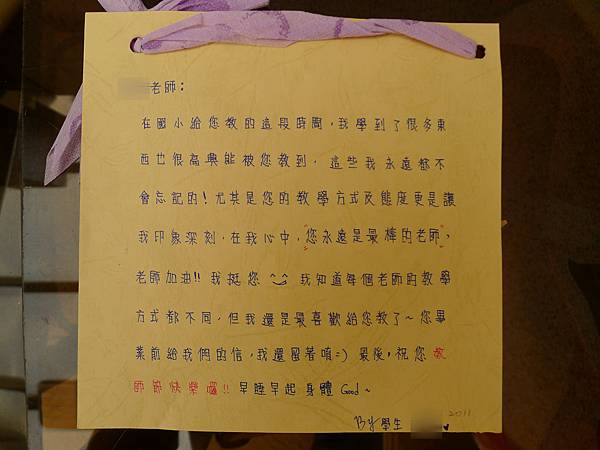 老師：
在國小給您教的這段時間，我學到了很多東
西也很高興能被您教到，這些我永遠都不
會忘記的！尤其是您的教學方式及態度更是讓
我印象深刻，在我心中，"您永遠是最棒的老師"，
老師加油!! 我挺您 ^_^ 我知道每個老師的教學
方式都不同，但我還是最喜歡給您教了~您畢
業前給我們的信，我還留著唷=) 最後，祝您教
師節快樂喔!! 早睡早起身體 Good~
By 學生
2011